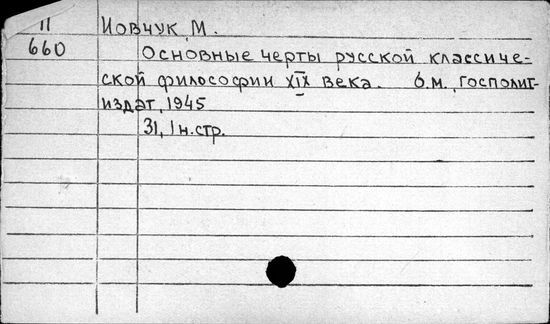 11 Иовчук М.
660 Основные черты русской классиче-
ской философии XIX века. б.м., Госполит-
издат, 1945
31, 1 н.стр.